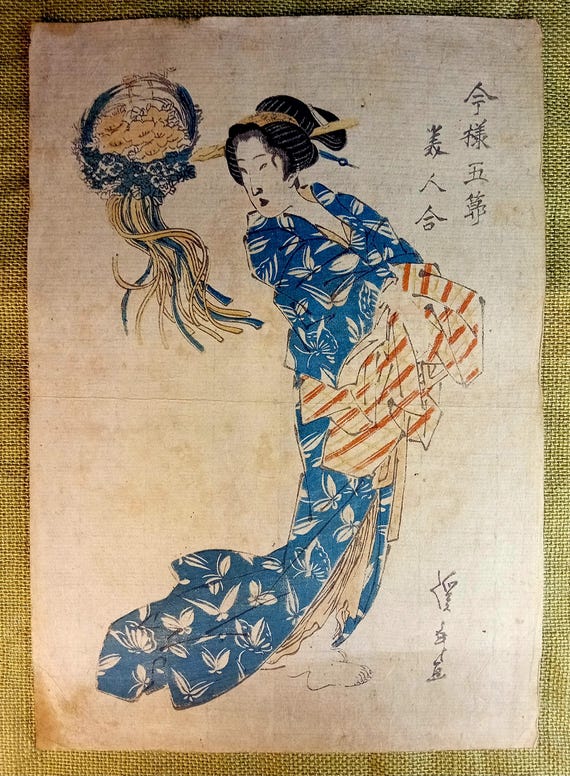 今様五節
美人合
溪斎画